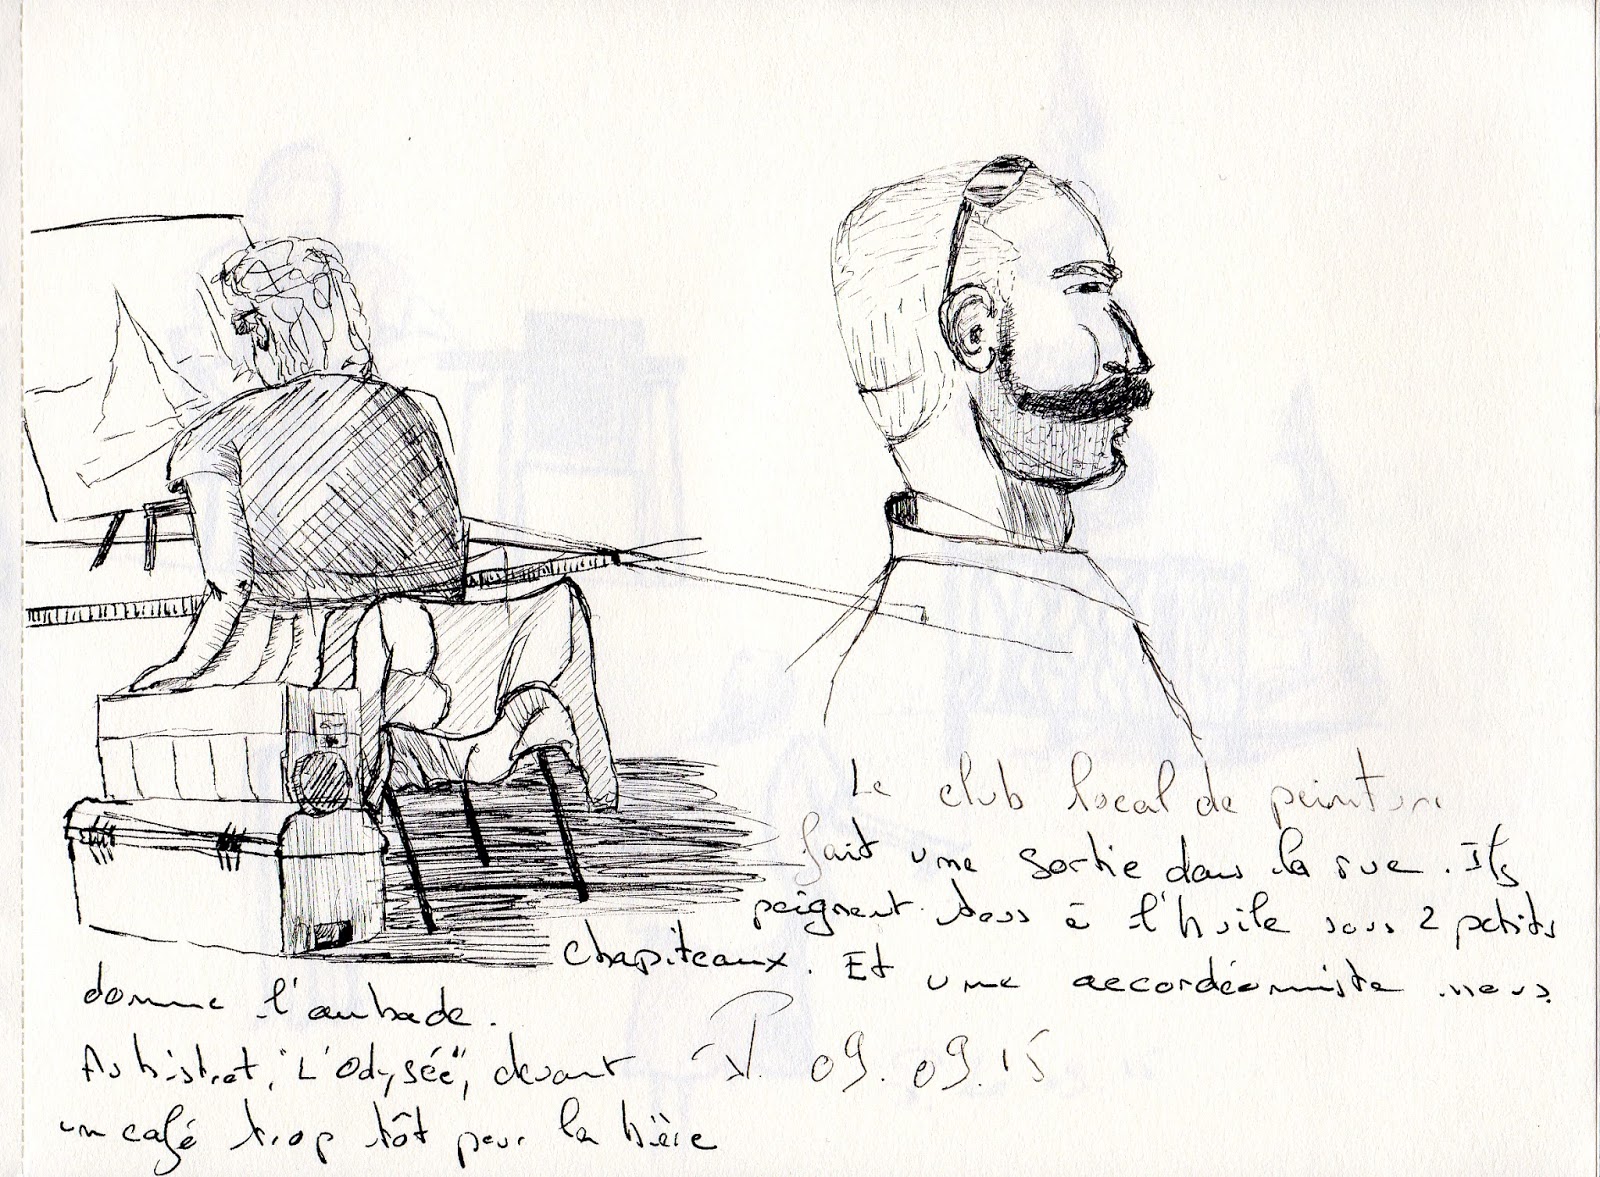 Le club local de peinture
fait une sortie dans la rue. Ils
peignent tous à l'huile sous 2 petits
chapiteaux. Et une accordéoniste nous
donne l'aubade.
Au bistrot, "L'Odysée", devant
un café trop tôt pour la bière
09.09.15